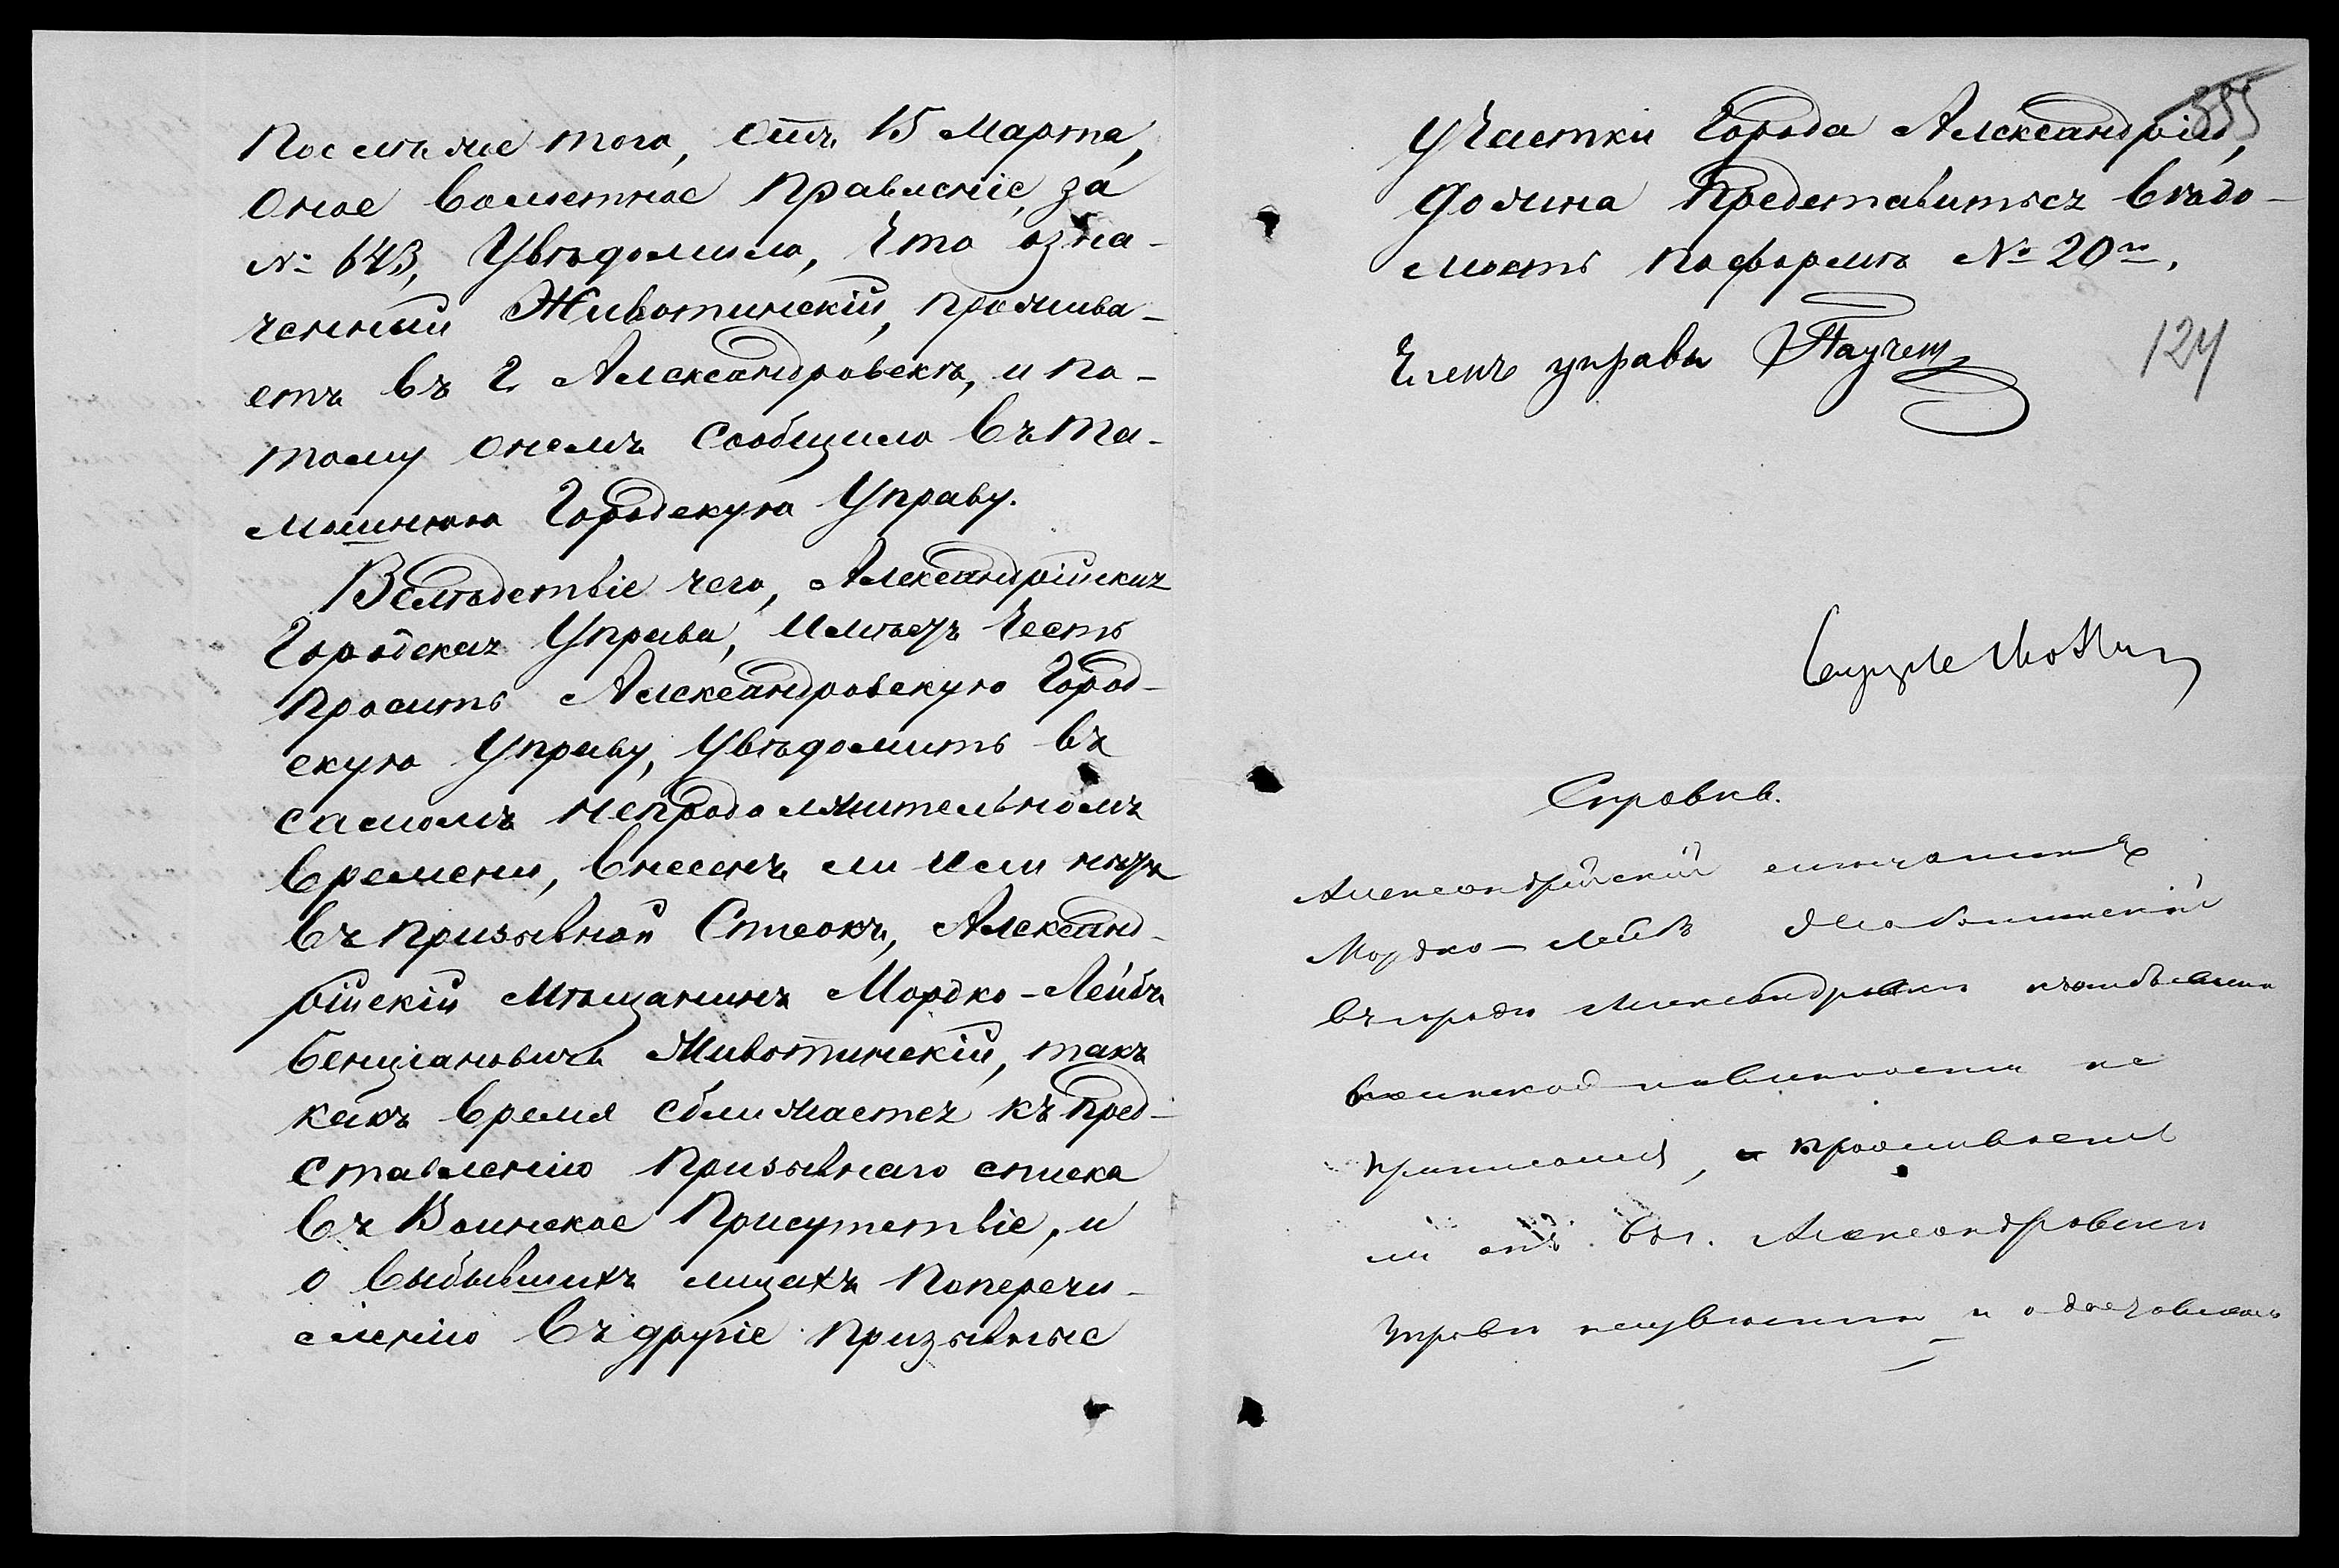 Послѣ же того, отъ 15 Марта,
оное волостное Правленіе, за
№ 643, Увѣдомило, что озна-
ченный Животинскій, прожива-
етъ въ г. Александровскѣ, и по-
тому онемъ сообщило въ та-
мошнюю Городскую Управу.
Вслѣдствіе чего, Александрійская
Городская Управа, Имѣетъ Честь
просить Александровскую Город-
скую Управу, Увѣдомить въ
самомъ непродолжительномъ
времени, внесенъ ли или нѣтъ
въ призывной Списокъ, Александ-
рійскій Мѣщанинъ Мордко-Лейбъ
Бенціановичъ Животинскій, такъ
какъ время сближается къ пред-
ставленію Призывнаго списка
въ Воинское Присутствіе, и
о выбывшихъ лицахъ поперечи-
сленію въ другіе призывные
участки Города Александріи,
должна Представиться вѣдо-
мость по формѣ № 20й.
Членъ управы
355
124
Справка.
Александрійскій мѣщанинъ
Мордко-Лейбъ Животинскій
въ городѣ Александровскѣ къ отбыванію
воинской повинности не
приписанъ, а проживаетъ
ли онъ въ г. Александровскѣ
Управѣ неизвѣстно